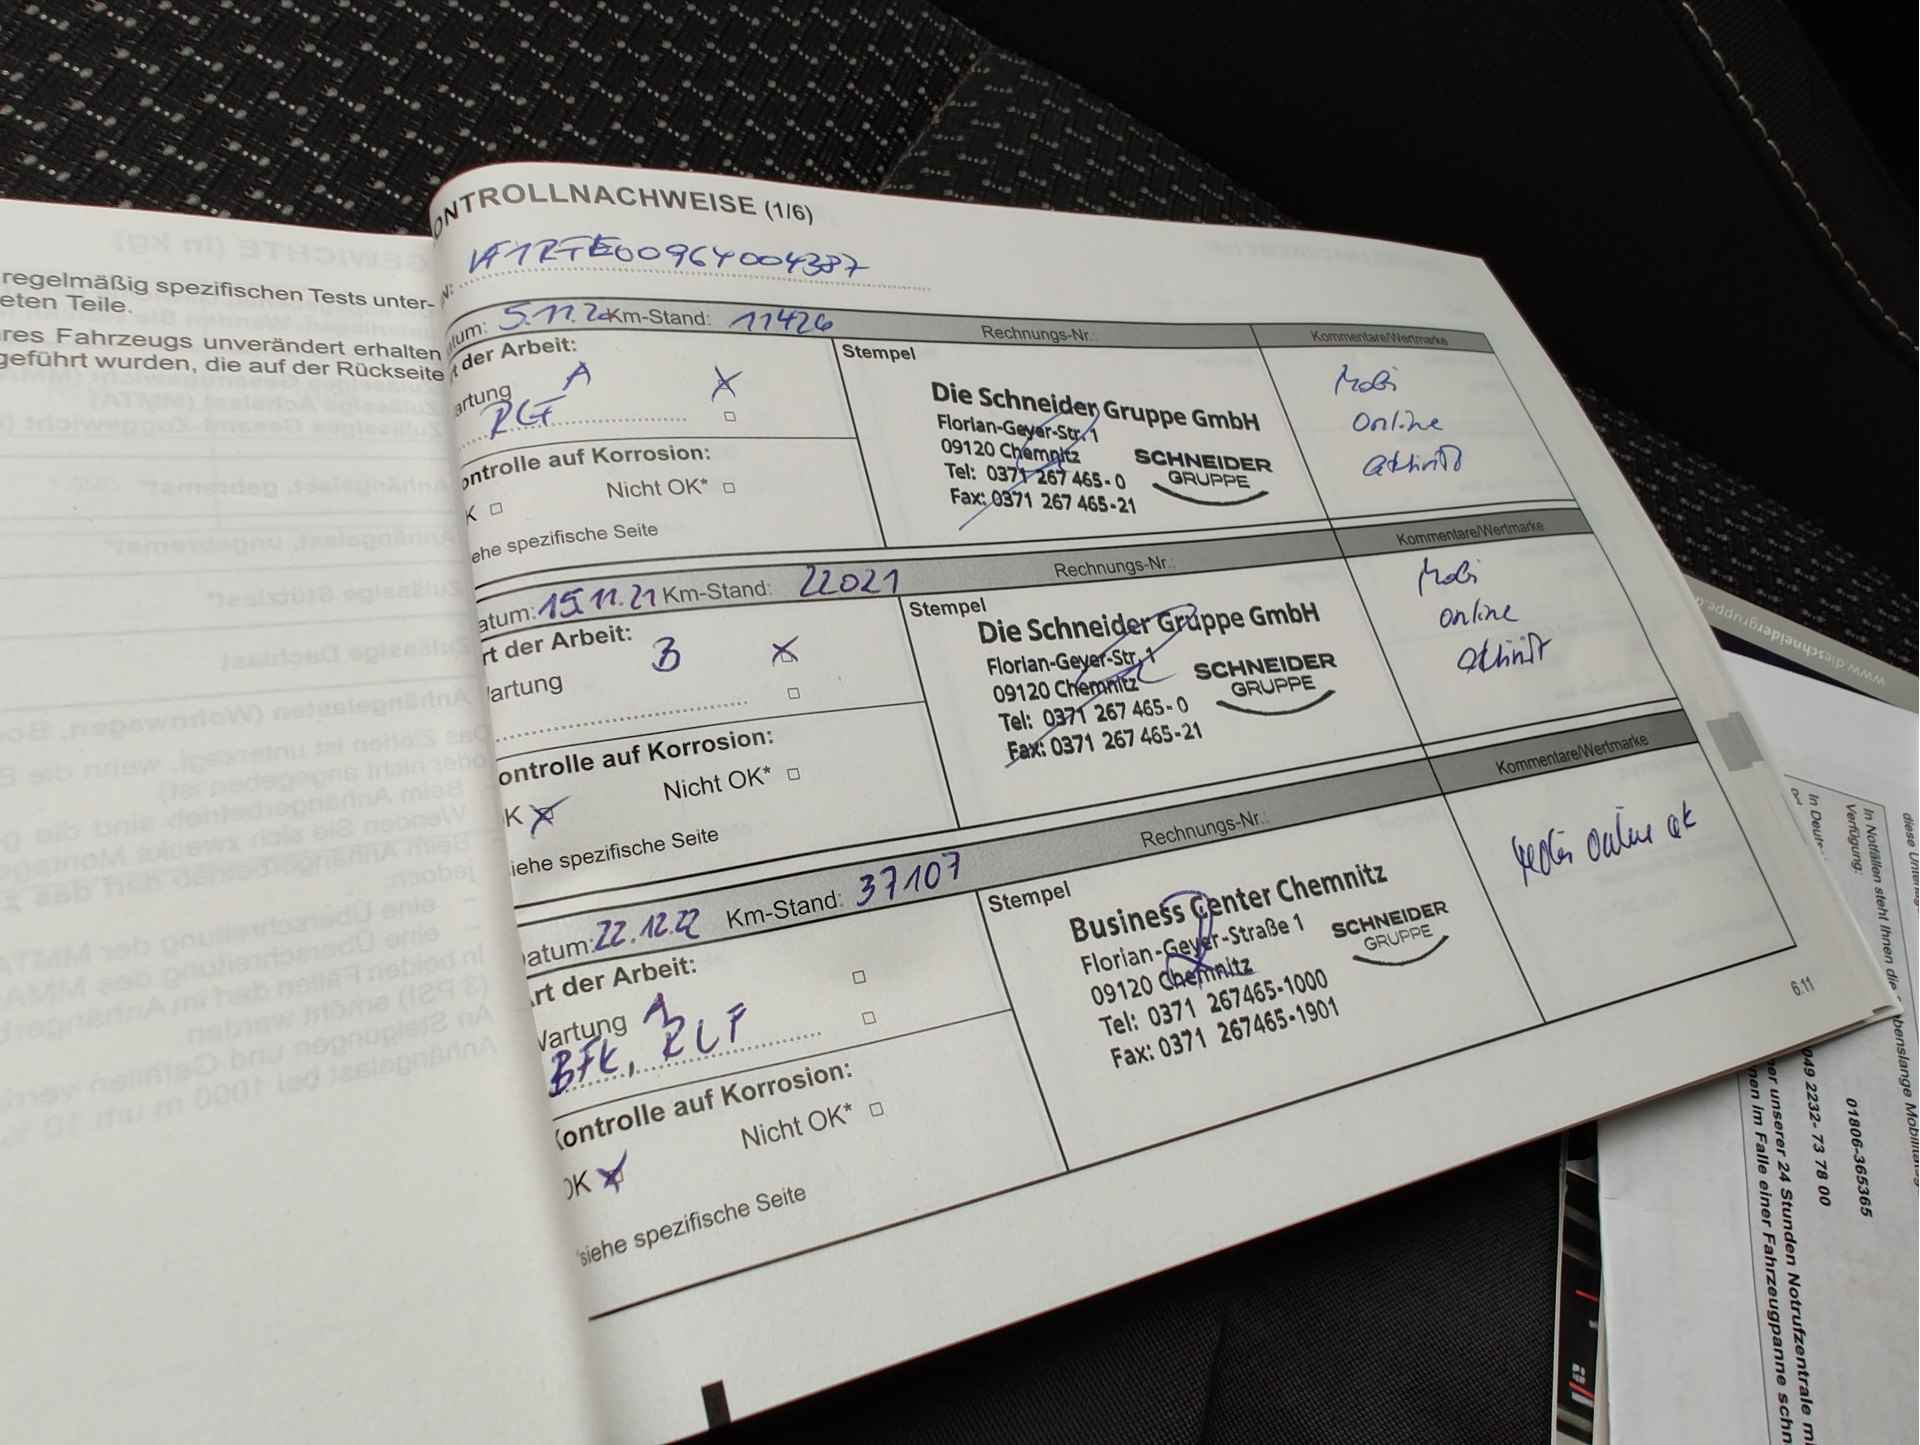 regelmäßig spezifischen Tests unter-
eten Teile.
res Fahrzeugs unverändert erhalten
geführt wurden, die auf der Rückseite
ONTROLLNACHWEISE (1/6)
N: VF1RFE00964004387
atum: 5.11.20 Km-Stand: 11426 Rechnungs-Nr.: Kommentare/Wertmarke
t der Arbeit:
artung A X
RLF
Stempel
Die Schneider Gruppe GmbH
Florian-Geyer-Str. 1
09120 Chemnitz
Tel: 0371 267 465-0
Fax: 0371 267 465-21
SCHNEIDER
GRUPPE
Mobi
online
aktiviert
ontrolle auf Korrosion:
K Nicht OK*
ehe spezifische Seite
atum: 15.11.21 Km-Stand: 22021 Rechnungs-Nr.: Kommentare/Wertmarke
rt der Arbeit:
artung B X
Stempel
Die Schneider Gruppe GmbH
Florian-Geyer-Str. 1
09120 Chemnitz
Tel: 0371 267 465-0
Fax: 0371 267 465-21
SCHNEIDER
GRUPPE
Mobi
online
aktiviert
ontrolle auf Korrosion:
K X Nicht OK*
iehe spezifische Seite
atum: 22.12.22 Km-Stand: 37107 Rechnungs-Nr.: Kommentare/Wertmarke
rt der Arbeit:
Wartung A
BFK, RLF
Stempel
Business Center Chemnitz
Florian-Geyer-Straße 1
09120 Chemnitz
Tel: 0371 267465-1000
Fax: 0371 267465-1901
SCHNEIDER
GRUPPE
online ok
Kontrolle auf Korrosion:
OK X Nicht OK*
*siehe spezifische Seite
6.11
www.dieschneidergruppe.d
In Notfällen steht Ihnen die
Verfügung:
01806-365365
In Deut
049 2232- 73 78 00
benslange Mobilität
er unserer 24 Stunden Notrufzentrale
nen im Falle einer Fahrzeugpanne